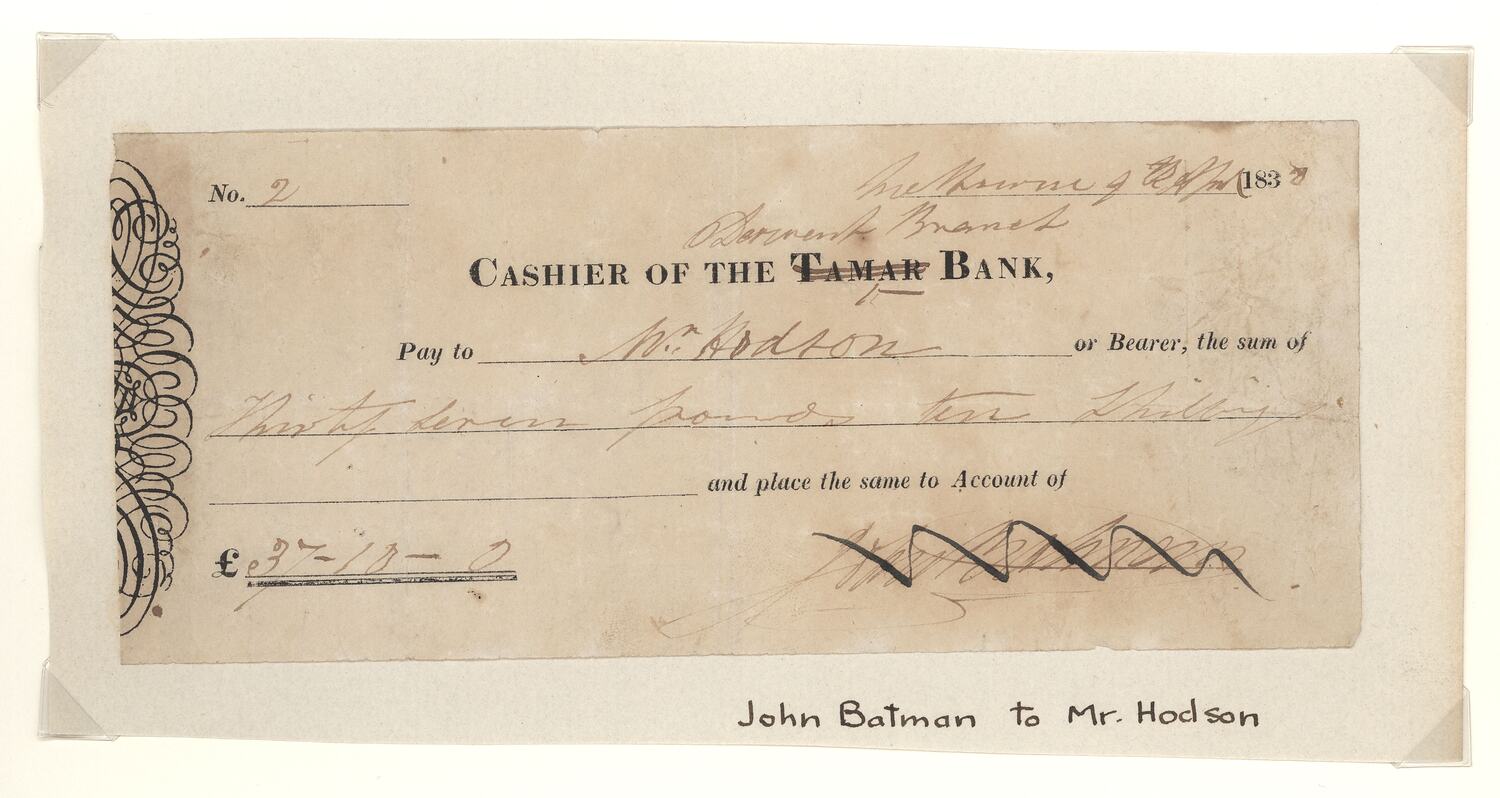 No. 2
Melbourne 9 April 1838
Derwent Branch
CASHIER OF THE TAMAR BANK,
Pay to Mr. Hodson or Bearer, the sum of
Thirty seven pounds ten shillings
and place the same to Account of
£ 37-10-0
John Batman
John Batman to Mr. Hodson